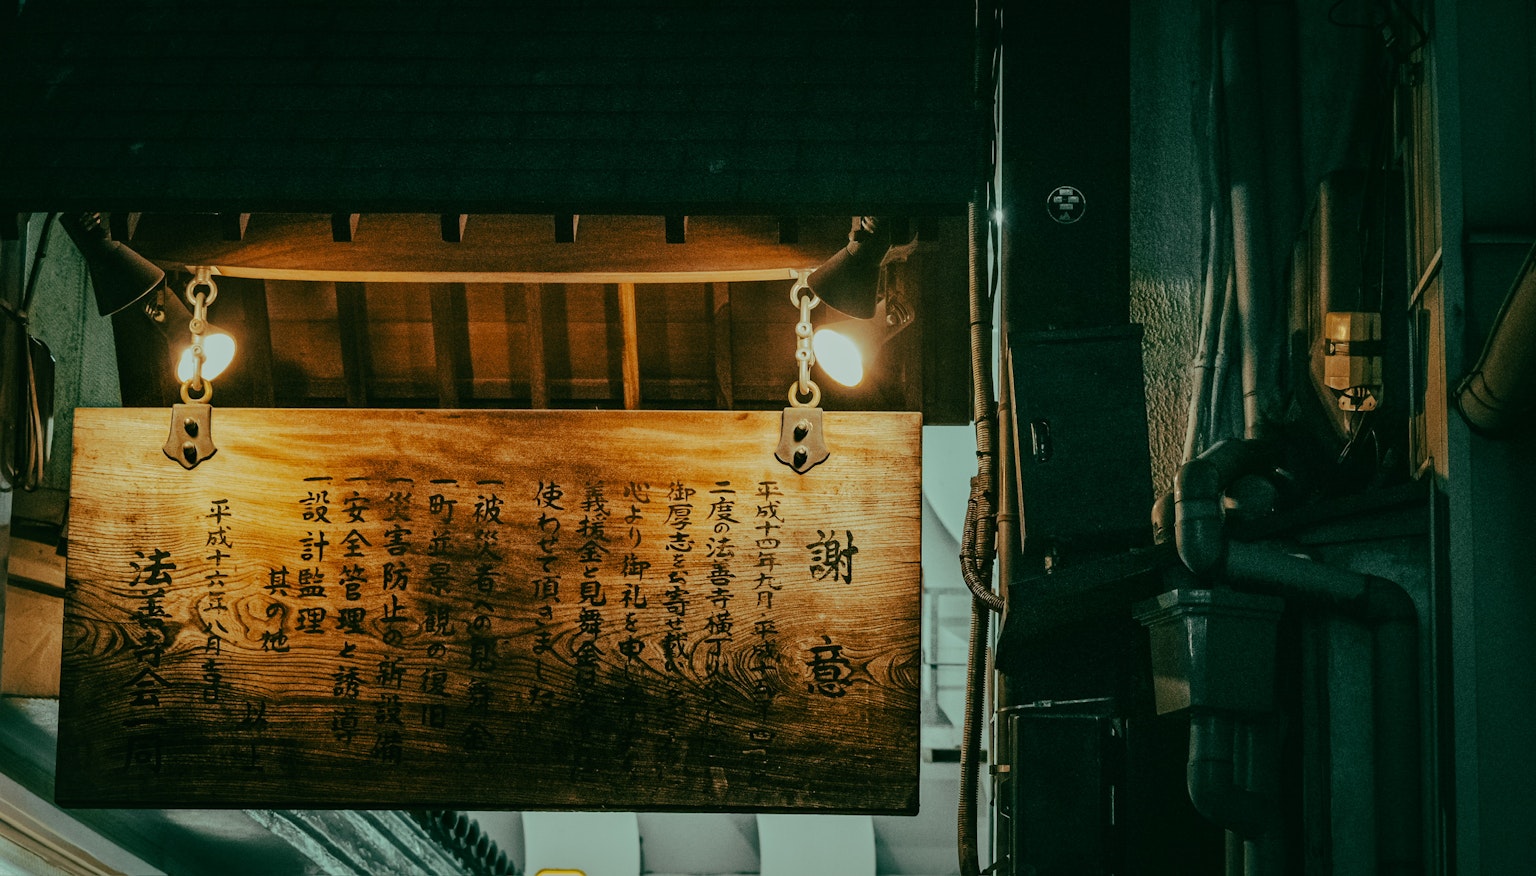 謝意
平成十四年九月平成十五年四月
二度の法善寺横丁火
御厚志をお寄せ戴
心より御礼を申
義援金と見舞金は
使わせて頂きました
一被災者への見舞金
一町並景観の復旧
一災害防止の新設備
一安全管理と誘導
一設計監理
其の他
以上
平成十六年八月吉日
法善寺会一同